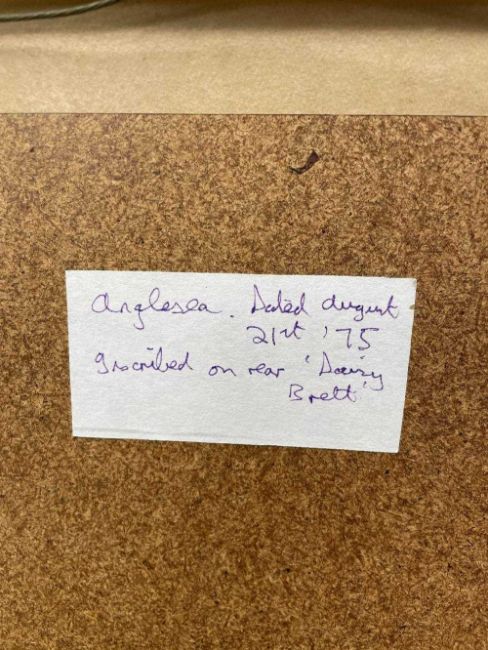 Anglesea. Dated August
21st '75
Inscribed on rear 'Daisy
Brett'